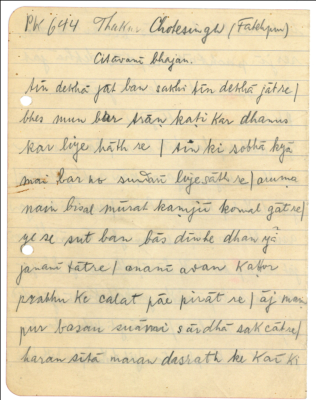 PK 644 Thakur Chotesingh (Fatehpur)
Citāvanī bhajan.
tīn dekhā jāt ban sakhī tīn dekhā jāt re/
bhes mun trān kaṭi kar dhanus
kar līye hāth re/ tīn ki sobhā kyā
mai bar no sundarī līye sāth re/
nain bisal mūrat komal gāt re/
ye se sut ban bās dinhe dhan
jananī tāt re/ avan kaṭhor
prabhu ke calat pāe pirāt re/ āj man
pur basau suāmi sārdhā sakcāt re/
haran sītā maran dasrath ke